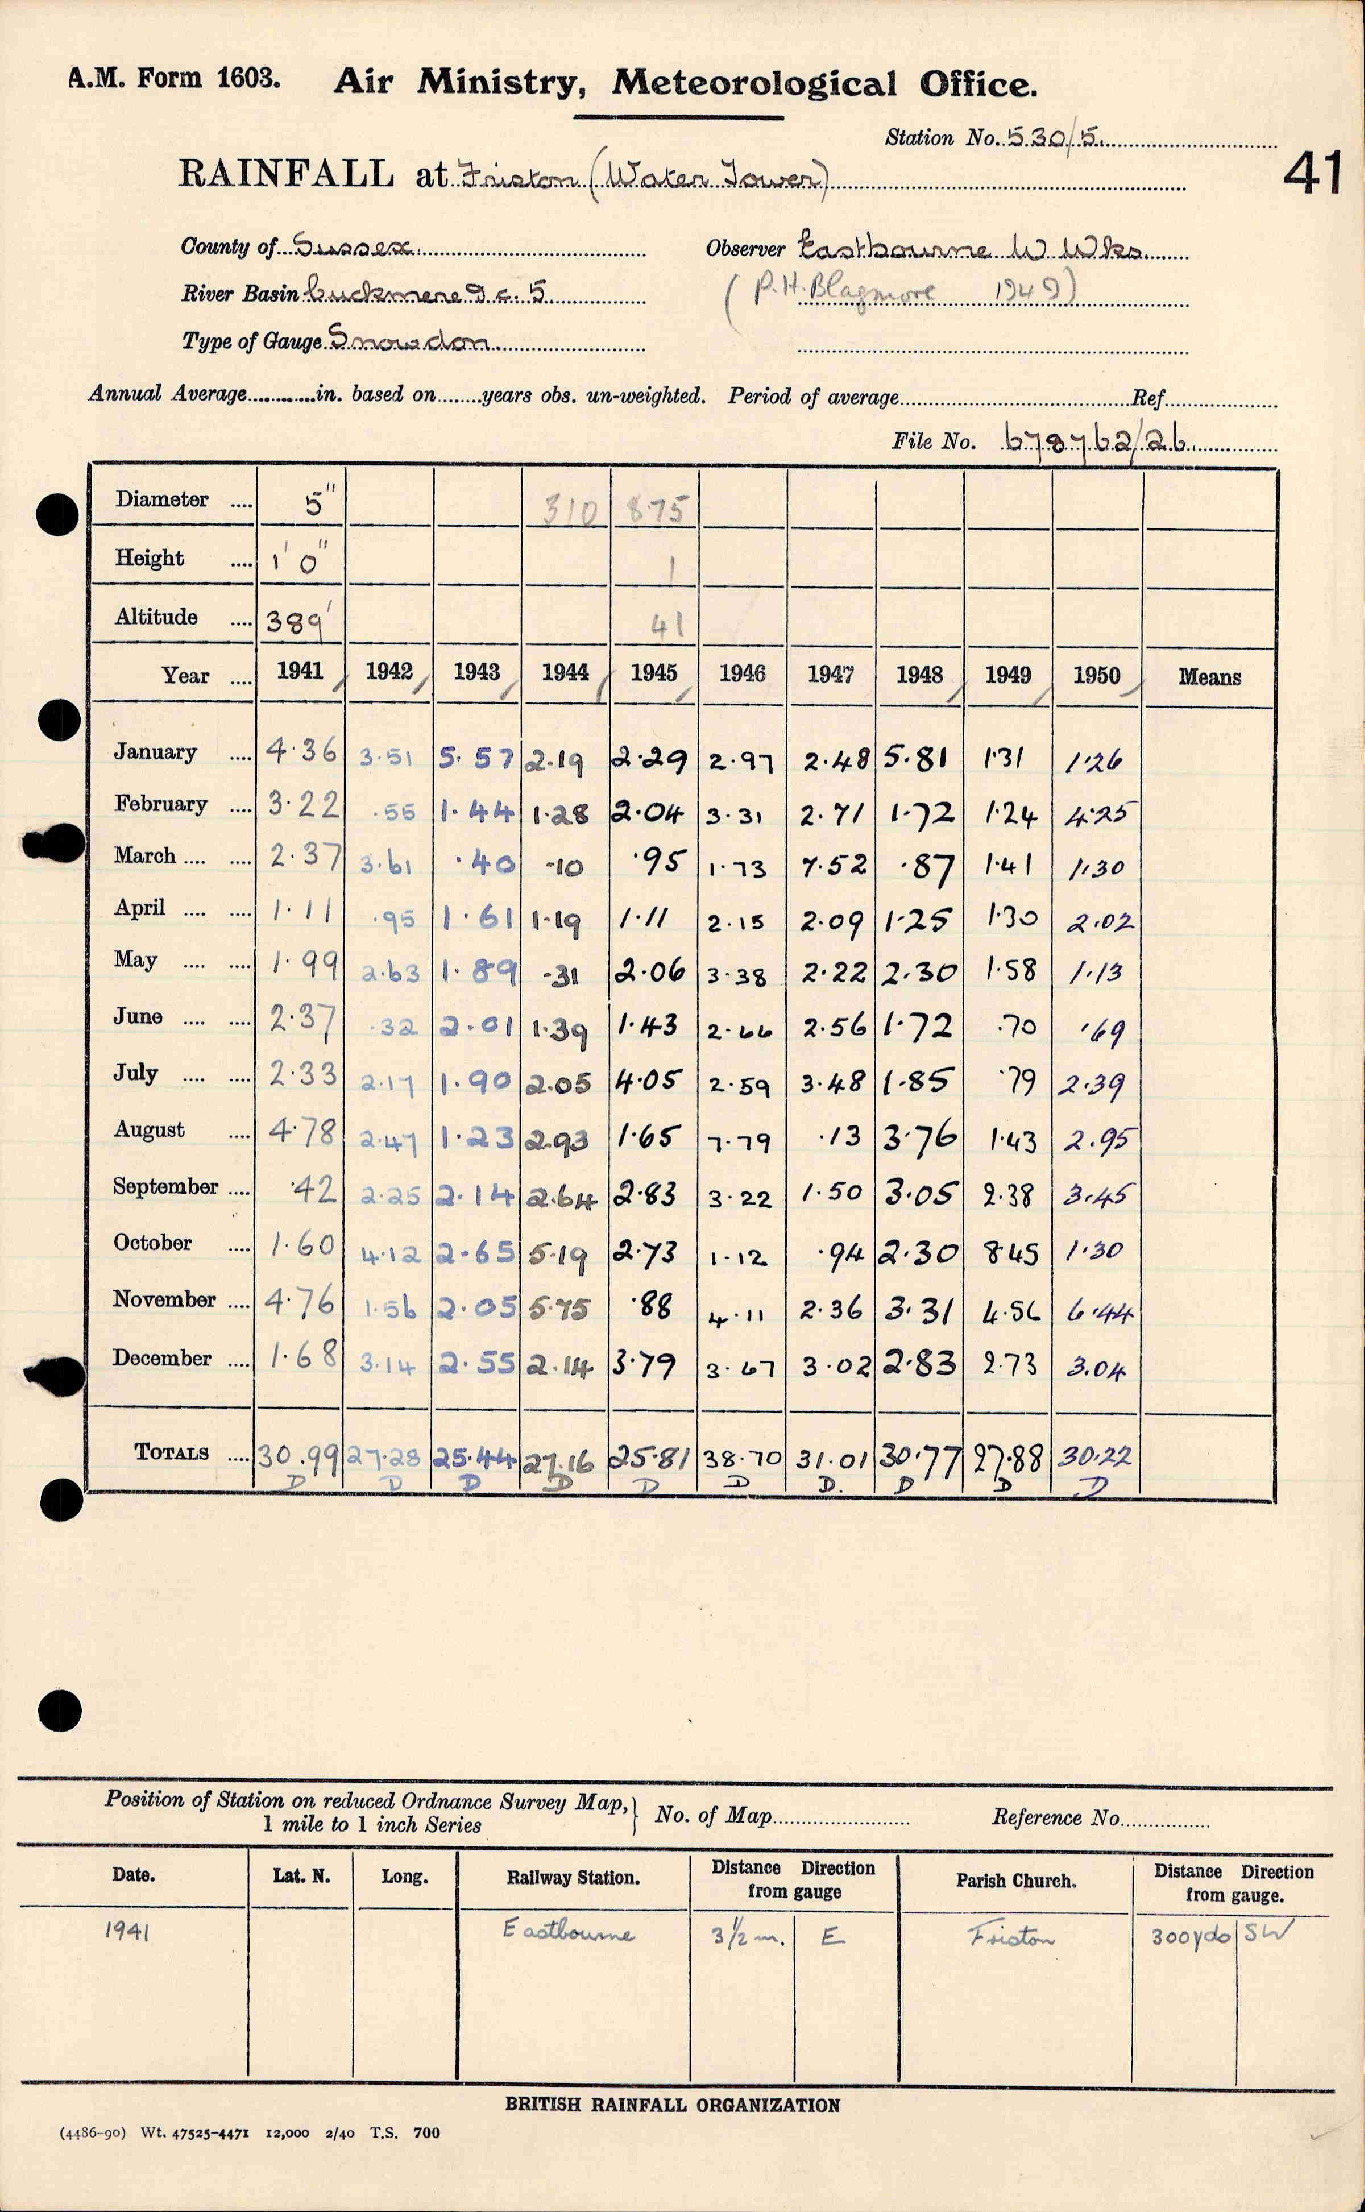 A.M. Form 1603. Air Ministry, Meteorological Office.
Station No. 530/5.
41
RAINFALL at Friston (Water Tower)
County of Sussex. Observer Eastbourne W Wks
River Basin Cuckmere &c. 5. (P.H. Blagmore 1949)
Type of Gauge Snowdon
Annual Average in. based on years obs. un-weighted. Period of average Ref
File No. 678762/26.
Diameter .... 5" 310 875
Height .... 1' 0" 1
Altitude .... 389' 41
Year .... 1941 1942 1943 1944 1945 1946 1947 1948 1949 1950 Means
January .... 4.36 3.51 5.57 2.19 2.29 2.97 2.48 5.81 1.31 1.26
February .... 3.22 .55 1.44 1.28 2.04 3.31 2.71 1.72 1.24 4.25
March .... .... 2.37 3.61 .40 .10 .95 1.73 7.52 .87 1.41 1.30
April .... .... 1.11 .95 1.61 1.19 1.11 2.15 2.09 1.25 1.30 2.02
May .... .... 1.99 2.63 1.89 .31 2.06 3.38 2.22 2.30 1.58 1.13
June .... .... 2.37 .32 2.01 1.39 1.43 2.66 2.56 1.72 .70 .69
July .... .... 2.33 2.17 1.90 2.05 4.05 2.59 3.48 1.85 .79 2.39
August .... 4.78 2.47 1.23 2.93 1.65 7.79 .13 3.76 1.43 2.95
September .... .42 2.25 2.14 2.64 2.83 3.22 1.50 3.05 2.38 3.45
October .... 1.60 4.12 2.65 5.19 2.73 1.12 .94 2.30 8.45 1.30
November .... 4.76 1.56 2.05 5.75 .88 4.11 2.36 3.31 4.56 6.44
December .... 1.68 3.14 2.55 2.14 3.79 3.67 3.02 2.83 2.73 3.04
TOTALS .... 30.99 27.28 25.44 27.16 25.81 38.70 31.01 30.77 27.88 30.22
D D D D D D D. D D D
Position of Station on reduced Ordnance Survey Map, } No. of Map Reference No
1 mile to 1 inch Series
Date. Lat. N. Long. Railway Station. Distance Direction Parish Church. Distance Direction
from gauge from gauge.
1941 Eastbourne 3 1/2 m. E Friston 300yds SW
BRITISH RAINFALL ORGANIZATION
(4486-90) Wt. 47525-4471 12,000 2/40 T.S. 700